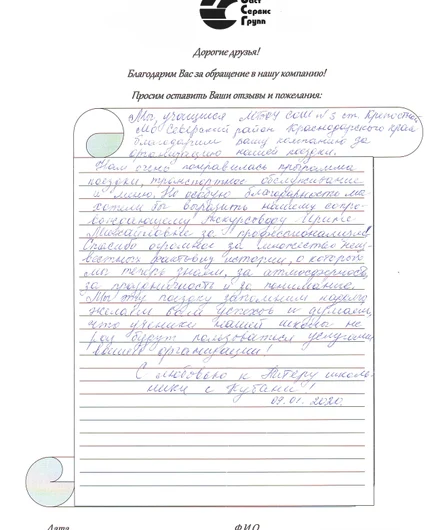 Васт
Сервис
Групп
Дорогие друзья!
Благодарим Вас за обращение в нашу компанию!
Просим оставить Ваши отзывы и пожелания:
Мы, учащиеся МБОУ СОШ № 3 ст. Крепостной
МО Северский район Краснодарского края
благодарим вашу компанию за
организацию нашей поездки.
Нам очень понравилась программа
поездки, транспортное обслуживание
и меню. Но особую благодарность мы
хотим бы выразить нашему сопро-
вождающему экскурсоводу Ирине
Михайловне за профессионализм!
Спасибо огромное за множество неиз-
вестных фактов истории, о которых
мы теперь знаем, за атмосферность,
за продуманность и за понимание.
Мы эту поездку запомним надолго
желаем вам успехов и думаем,
что ученики нашей школы не
раз будут пользоваться услугами
вашей организации!
С любовью к Питеру школь-
ники с Кубани!
09.01.2020.
Дата
Ф.И.О.